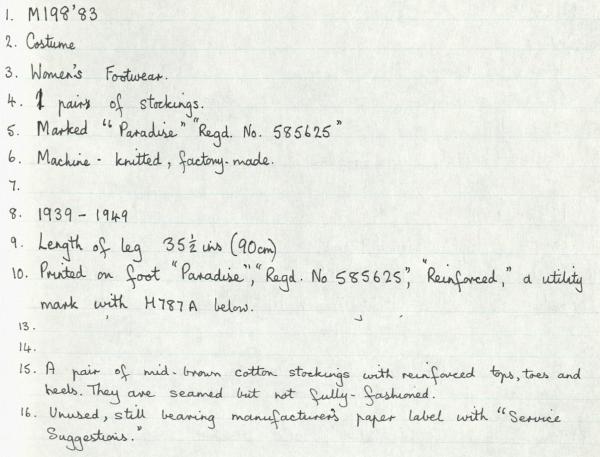 1. M198'83
2. Costume
3. Women's Footwear.
4. 1 pairs of stockings.
5. Marked "Paradise" "Regd. No. 585625"
6. Machine-knitted, factory-made.
7.
8. 1939 - 1949
9. Length of leg 35½ ins (90cm)
10. Printed on foot "Paradise", "Regd. No 585625", "Reinforced," a utility
mark with H787A below.
13.
14.
15. A pair of mid-brown cotton stockings with reinforced tops, toes and
heels. They are seamed but not fully-fashioned.
16. Unused, still bearing manufacturers paper label with "Service
Suggestions."